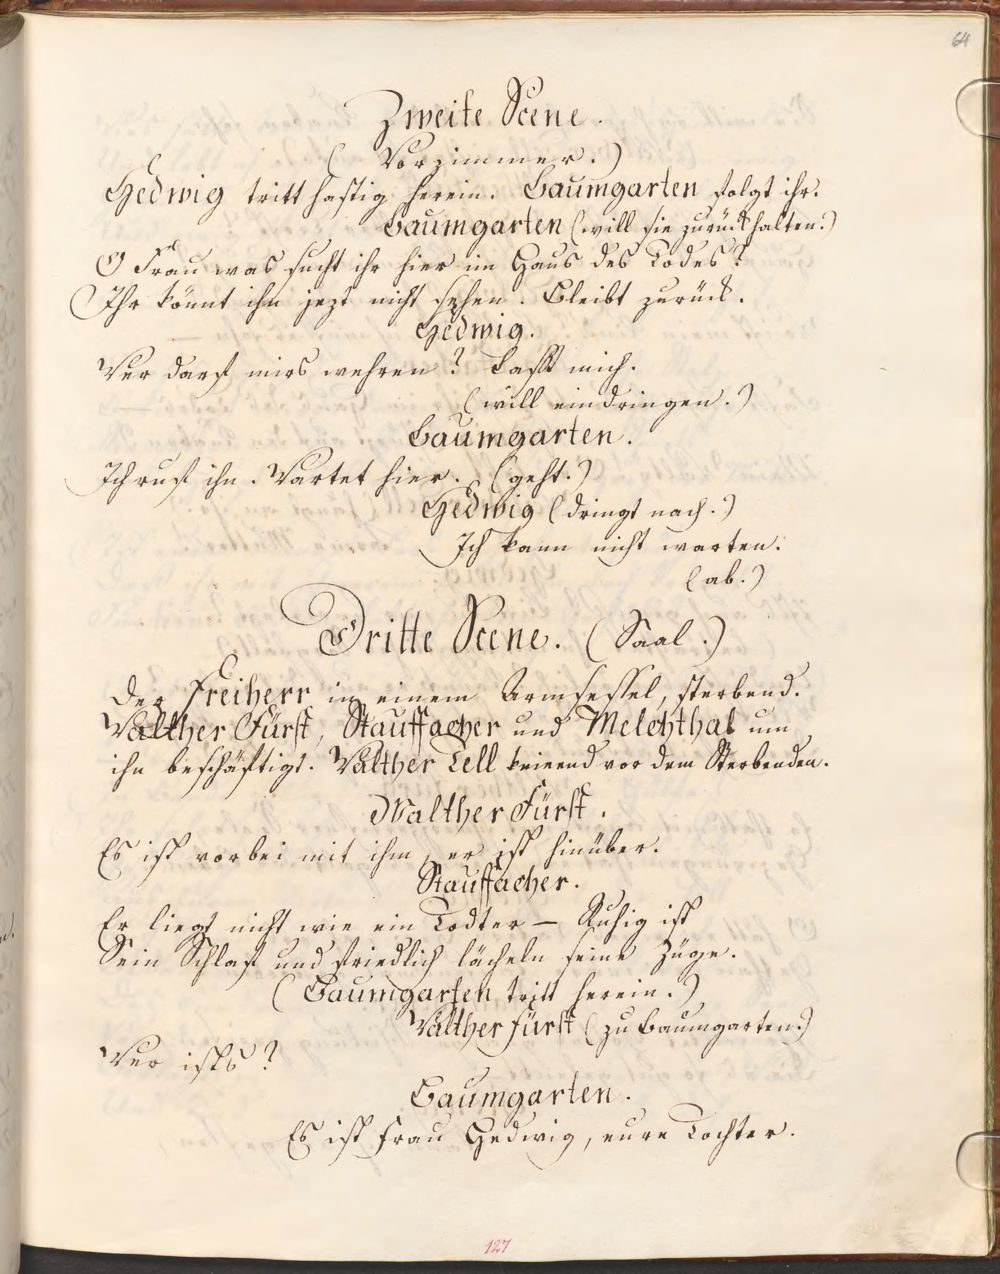 64
Zweite Scene.
(Vorzimmer.)
Hedwig tritt hastig herein. Baumgarten folgt ihr.
Baumgarten (will sie zurückhalten.)
O Frau was sucht ihr hier im Haus des Todes?
Ihr könnt ihn jezt nicht sehen. Bleibt zurück.
Hedwig.
Wer darf mirs wehren? Lasst mich.
(will eindringen.)
Baumgarten.
Ich ruf ihn. Wartet hier. (geht.)
Hedwig (dringt nach.)
Ich kann nicht warten.
(ab.)
Dritte Scene. (Saal.)
Der Freiherr in einem Armsessel, sterbend.
Walther Fürst, Stauffacher und Melchthal um
ihn beschäftigt. Walther Tell knieend vor dem Sterbenden.
Walther Fürst.
Es ist vorbei mit ihm, er ist hinüber.
Stauffacher.
Er liegt nicht wie ein Todter — Ruhig ist
Sein Schlaf und friedlich lächeln seine Züge.
(Baumgarten tritt herein.)
Walther Fürst (zu Baumgarten.)
Wer ists?
Baumgarten.
Es ist Frau Hedwig, eure Tochter.
127